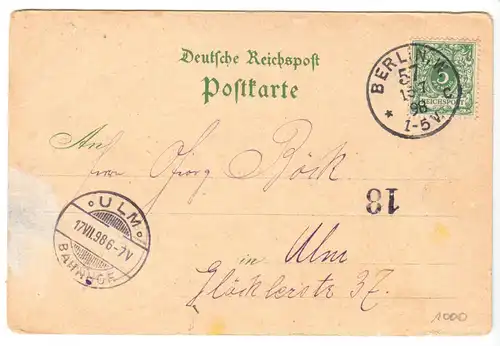 Deutsche Reichspost
Postkarte
BERLIN, W.
57
98
1-5 V.
5
REICHSPOST
An
Herrn Georg Böck
18
in Ulm
Glöcklerstr. 37.
ULM
17 VII. 98 6-7 V
BAHNHOF
1000